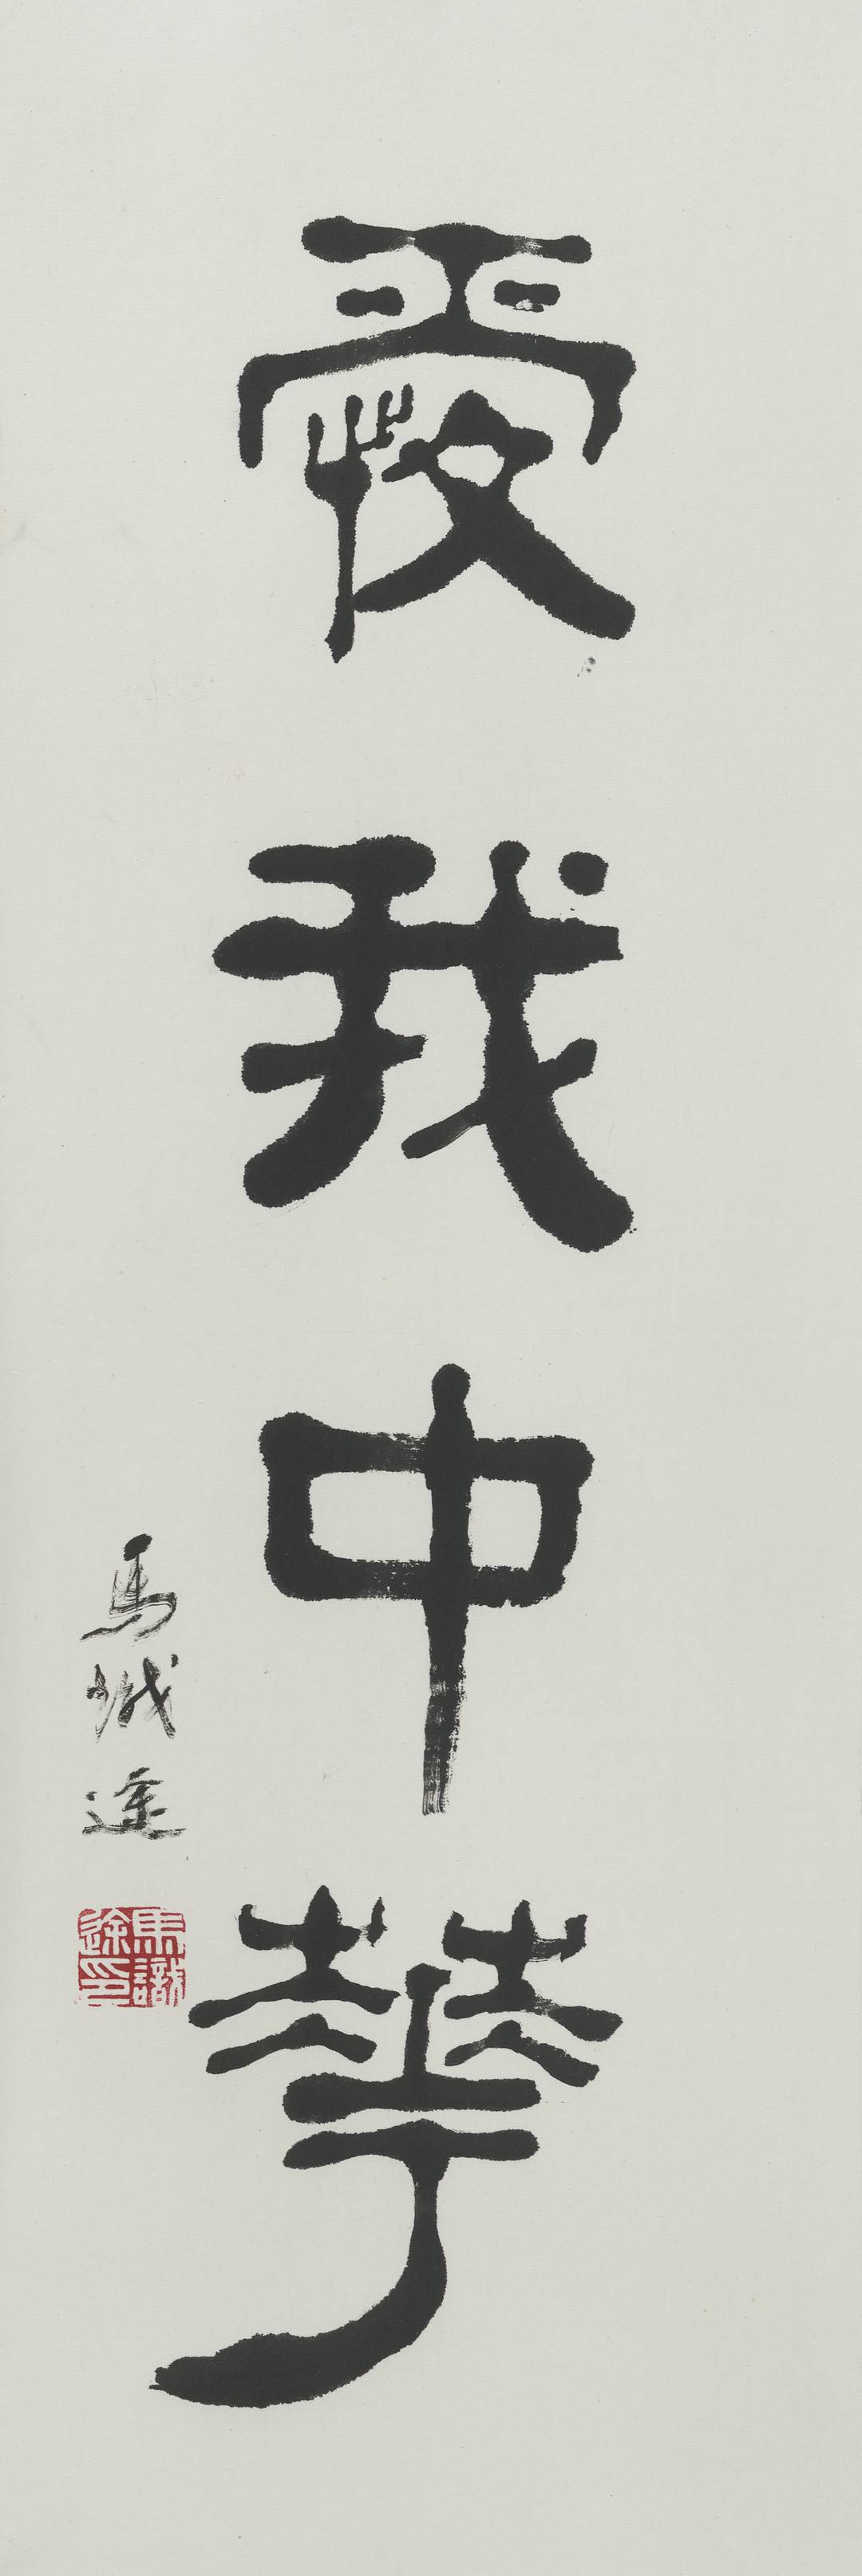 愛我中華
馬識途
馬識
途印